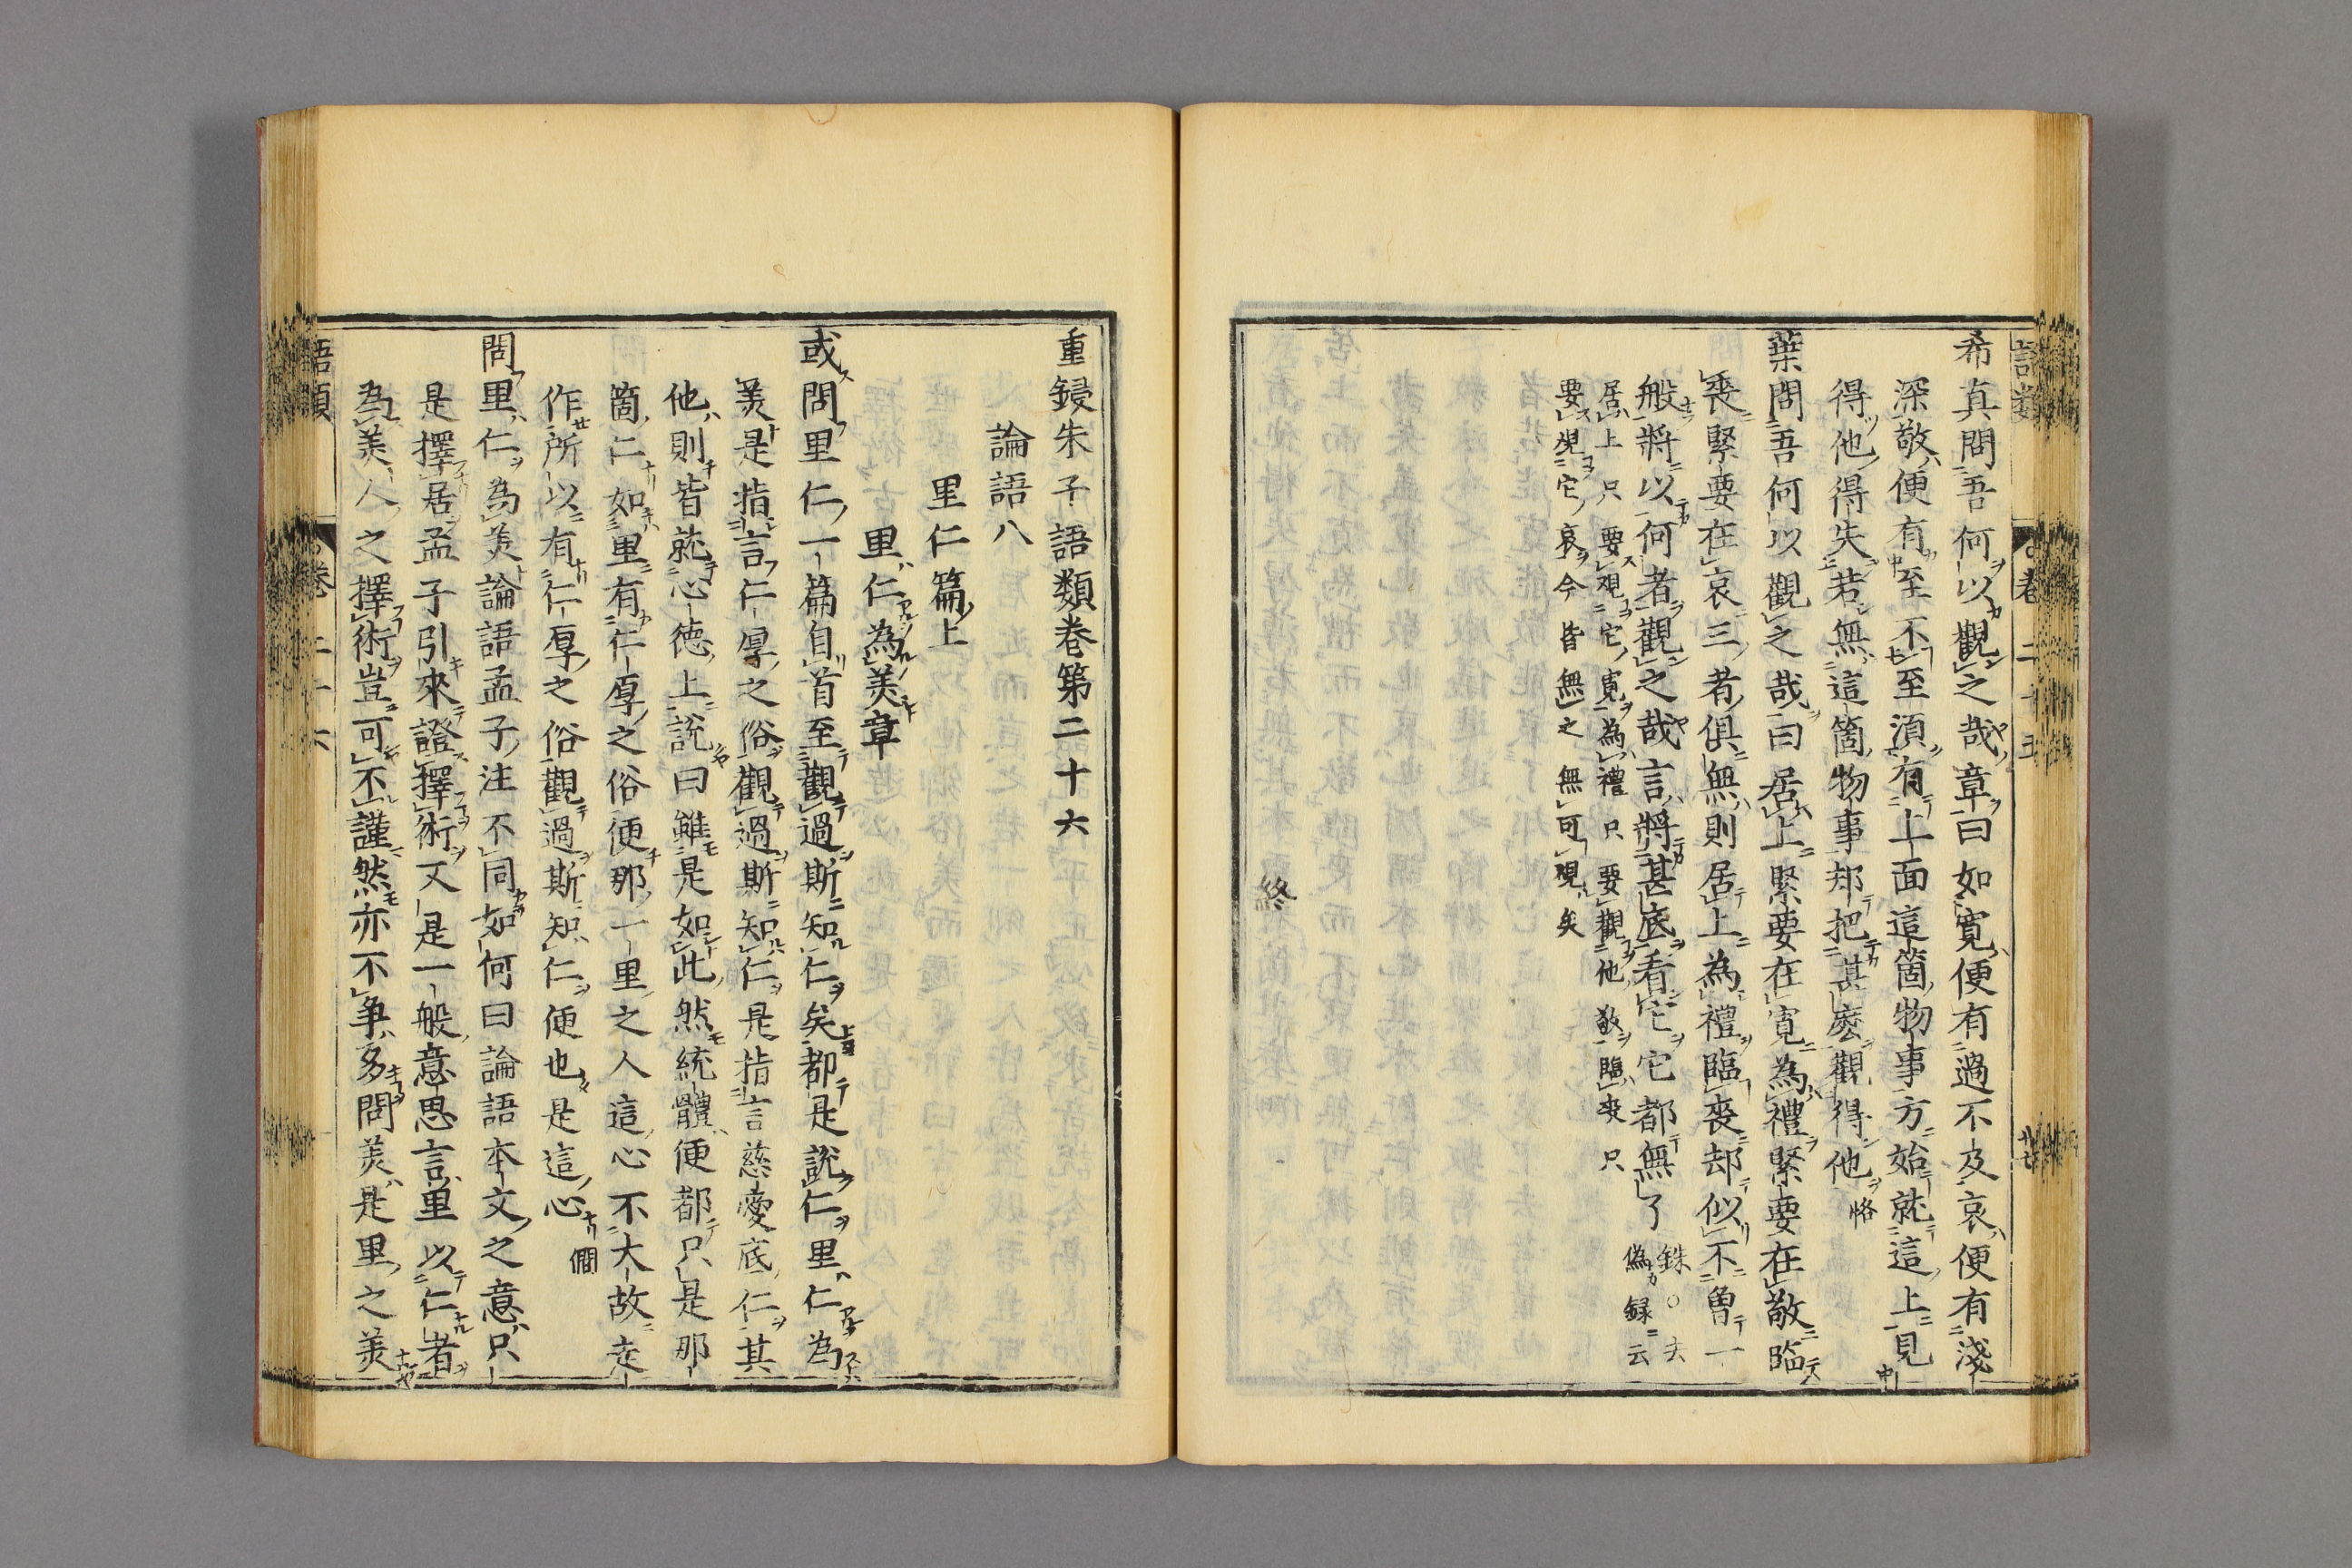 希真問吾何以觀之哉章曰如寛便有過不及哀便有淺
深敬便有至不至須有上面這箇物事方始就這上見
得他得失若無這箇物事却把甚麽觀得他恪
葉問吾何以觀之哉曰居上緊要在寛為禮緊要在敬臨
喪緊要在哀三者俱無則居上為禮臨喪却似不曾一
般將以何者觀之哉言將甚底看它它都無了銖○去
偽録云
居上只要觀它寛為禮只要觀他敬臨喪只
要觀它哀今皆無之無可觀矣
終
語類
卷二十五
重鋟朱子語類卷第二十六
論語八
里仁篇上
里仁為美章
或問里仁一篇自首至觀過斯知仁矣都是說仁里仁為
美是指言仁厚之俗觀過斯知仁是指言慈愛底仁其
他則皆就心德上說曰雖是如此然統體便都只是那
箇仁如里有仁厚之俗便那一里之人這心不大故走
作所以有仁厚之俗觀過斯知仁便也是這心僩
問里仁為美論語孟子注不同如何曰論語本文之意只
是擇居孟子引來證擇術又是一般意思言里以仁者
為美人之擇術豈可不謹然亦不爭多問美是里之美
語類
卷二十六